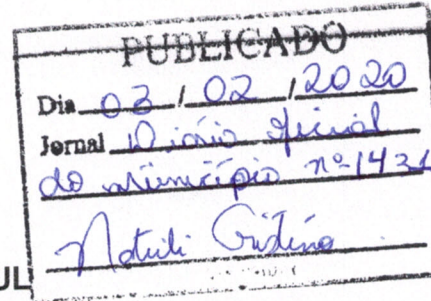 PUBLICADO
Dia 03 / 02 / 2020
Jornal Diário Oficial
do município nº 1431
Cristina
UL